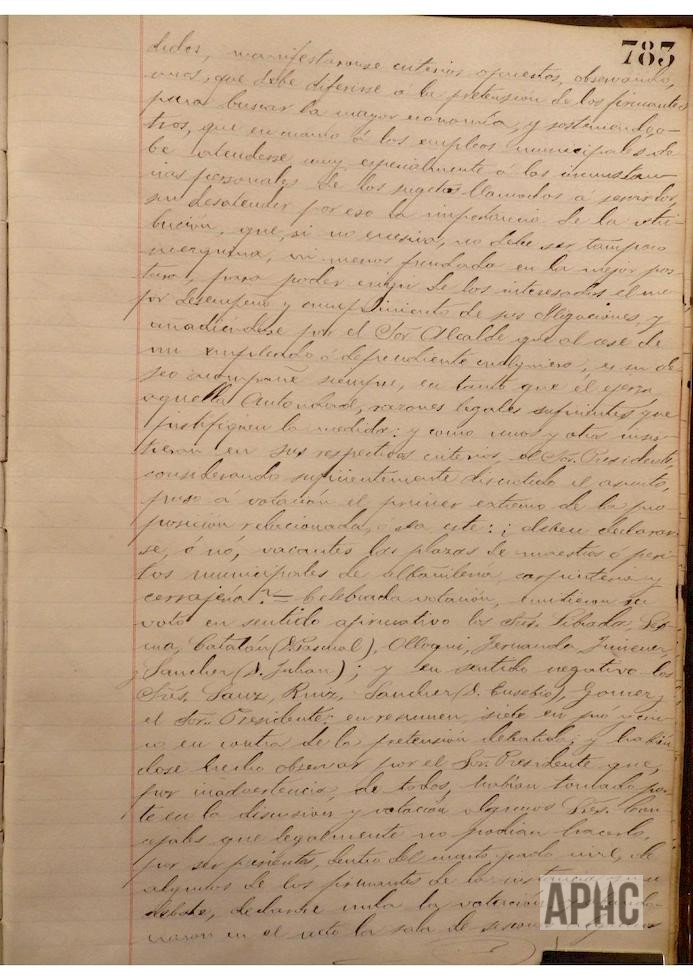 783
didos, manifestaronse criterios opuestos, observando,
unos, que debe diferirse á la pretensión de los firmantes
para buscar la mayor economía, y sosteniendo o-
tros, que en cuanto á los empleos municipales de-
be atenderse muy especialmente á las circunstan-
cias personales de los sugetos llamados á servirlos,
sin desatender por eso la importancia de la retri-
bución, que, si no excesiva, no debe ser tampoco
mezquina, ni menos fundada en la mejor pos-
tura, para poder exigir de los interesados el me-
jor desempeño y cumplimiento de sus obligaciones, y
añadiéndose por el Sor. Alcalde que al cese de
un empleado ó dependiente cualquiera, es su de-
seo acompañe siempre, en tanto que el ejerza
aquella Autoridad, razones legales suficientes que
justifiquen la medida: y como unos y otros insis-
tieran en sus respectivos criterios, el Sor. Presidente,
considerando suficientemente discutido el asunto,
puso á votación el primer extremo de la pro
posición relacionada, ó sea este: ¿deben declarar-
se, ó nó, vacantes las plazas de maestros ó peri-
tos municipales de albañilería, carpintería y
cerrajería?= Celebrada votación, emitieron su
voto en sentido afirmativo los Sres. Librada,
Catalán (D. Pascual), Olloqui, Fernando, Jimenez,
Sanchez (D. Julian); y en sentido negativo los
Sres. Sanz, Ruiz, Sanchez (D. Eusebio), Gomez y
el Sor. Presidente: en resumen, siete en pró y cin-
co en contra de la pretensión debatida; y habién-
dose hecho observar por el Sor. Presidente que,
por inadvertencia, de todos, habían tomado par-
te en la discusión y votación algunos Sres. Con-
cejales que legalmente no podían hacerlo,
por ser parientes, dentro del cuarto grado civil, de
algunos de los firmantes de la
debate, declaróse nula la votación
en el acto la sala de
APHC